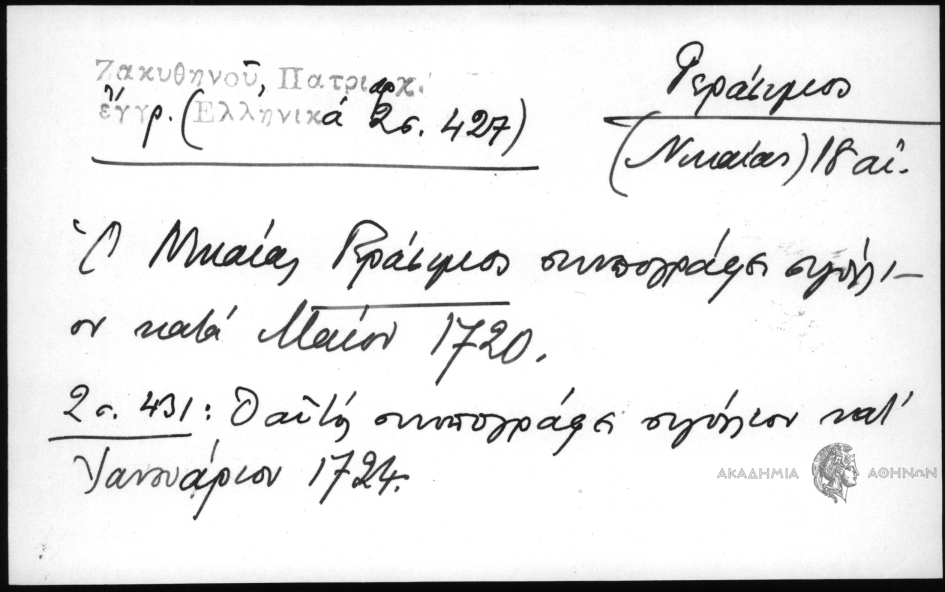 Ζακυθηνοῦ, Πατριαρχ.
ἔγγρ. (Ἑλληνικά 2 σ. 427)
Γεράσιμος
(Νικαίας) 18 αἰ.
Ὁ Νικαίας Γεράσιμος συνυπογράφει σιγίλλι-
ον κατά Μαίον 1720.
2 σ. 431: Ὁ αὐτός συνυπογράφει σιγίλλιον κατ'
Ἰανουάριον 1724.
ΑΚΑΔΗΜΙΑ ΑΘΗΝΩΝ